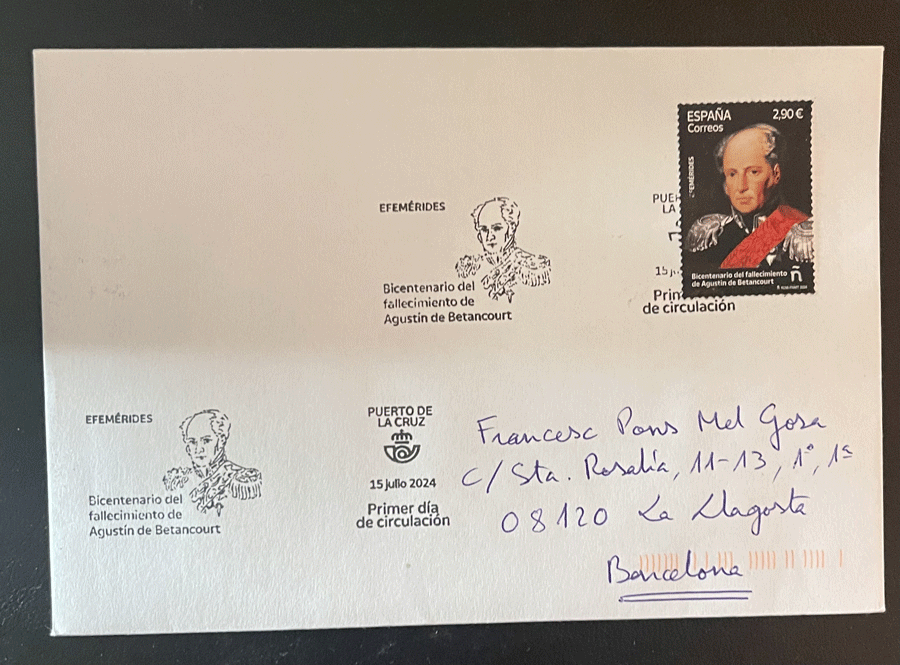 ESPAÑA 2,90 €
Correos
EFEMÉRIDES
Bicentenario del fallecimiento
de Agustín de Betancourt
ñ
EFEMÉRIDES
Bicentenario del
fallecimiento de
Agustín de Betancourt
PUER
LA
15 ju
Prim
de circulación
EFEMÉRIDES
Bicentenario del
fallecimiento de
Agustín de Betancourt
PUERTO DE
LA CRUZ
15 julio 2024
Primer día
de circulación
Francesc Pons Mel Gosa
C/ Sta. Rosalía, 11-13, 1º, 1ª
08120 La Llagosta
Barcelona